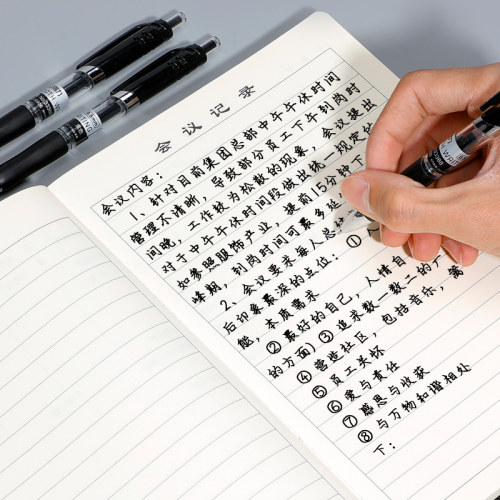 会议记录
会议内容：
1、针对目前集团总部中午午休时间
管理不清晰，导致部分员工下午到岗时
间晚，工作较为松散的现象，会议提出
对于中午午休时间段做出统一规定
如参照服饰产业，提前15分钟下
峰期，到岗时间可最多延
2、会议要求每人总
后印象最深的点位：①
能，本质需求
②最好的自己，人情自
的方面）③追求数一数二的广
④营造社区，包括音乐，
⑤员工关怀
⑥爱与责任
⑦感恩与收获
⑧与万物和谐相处
下：